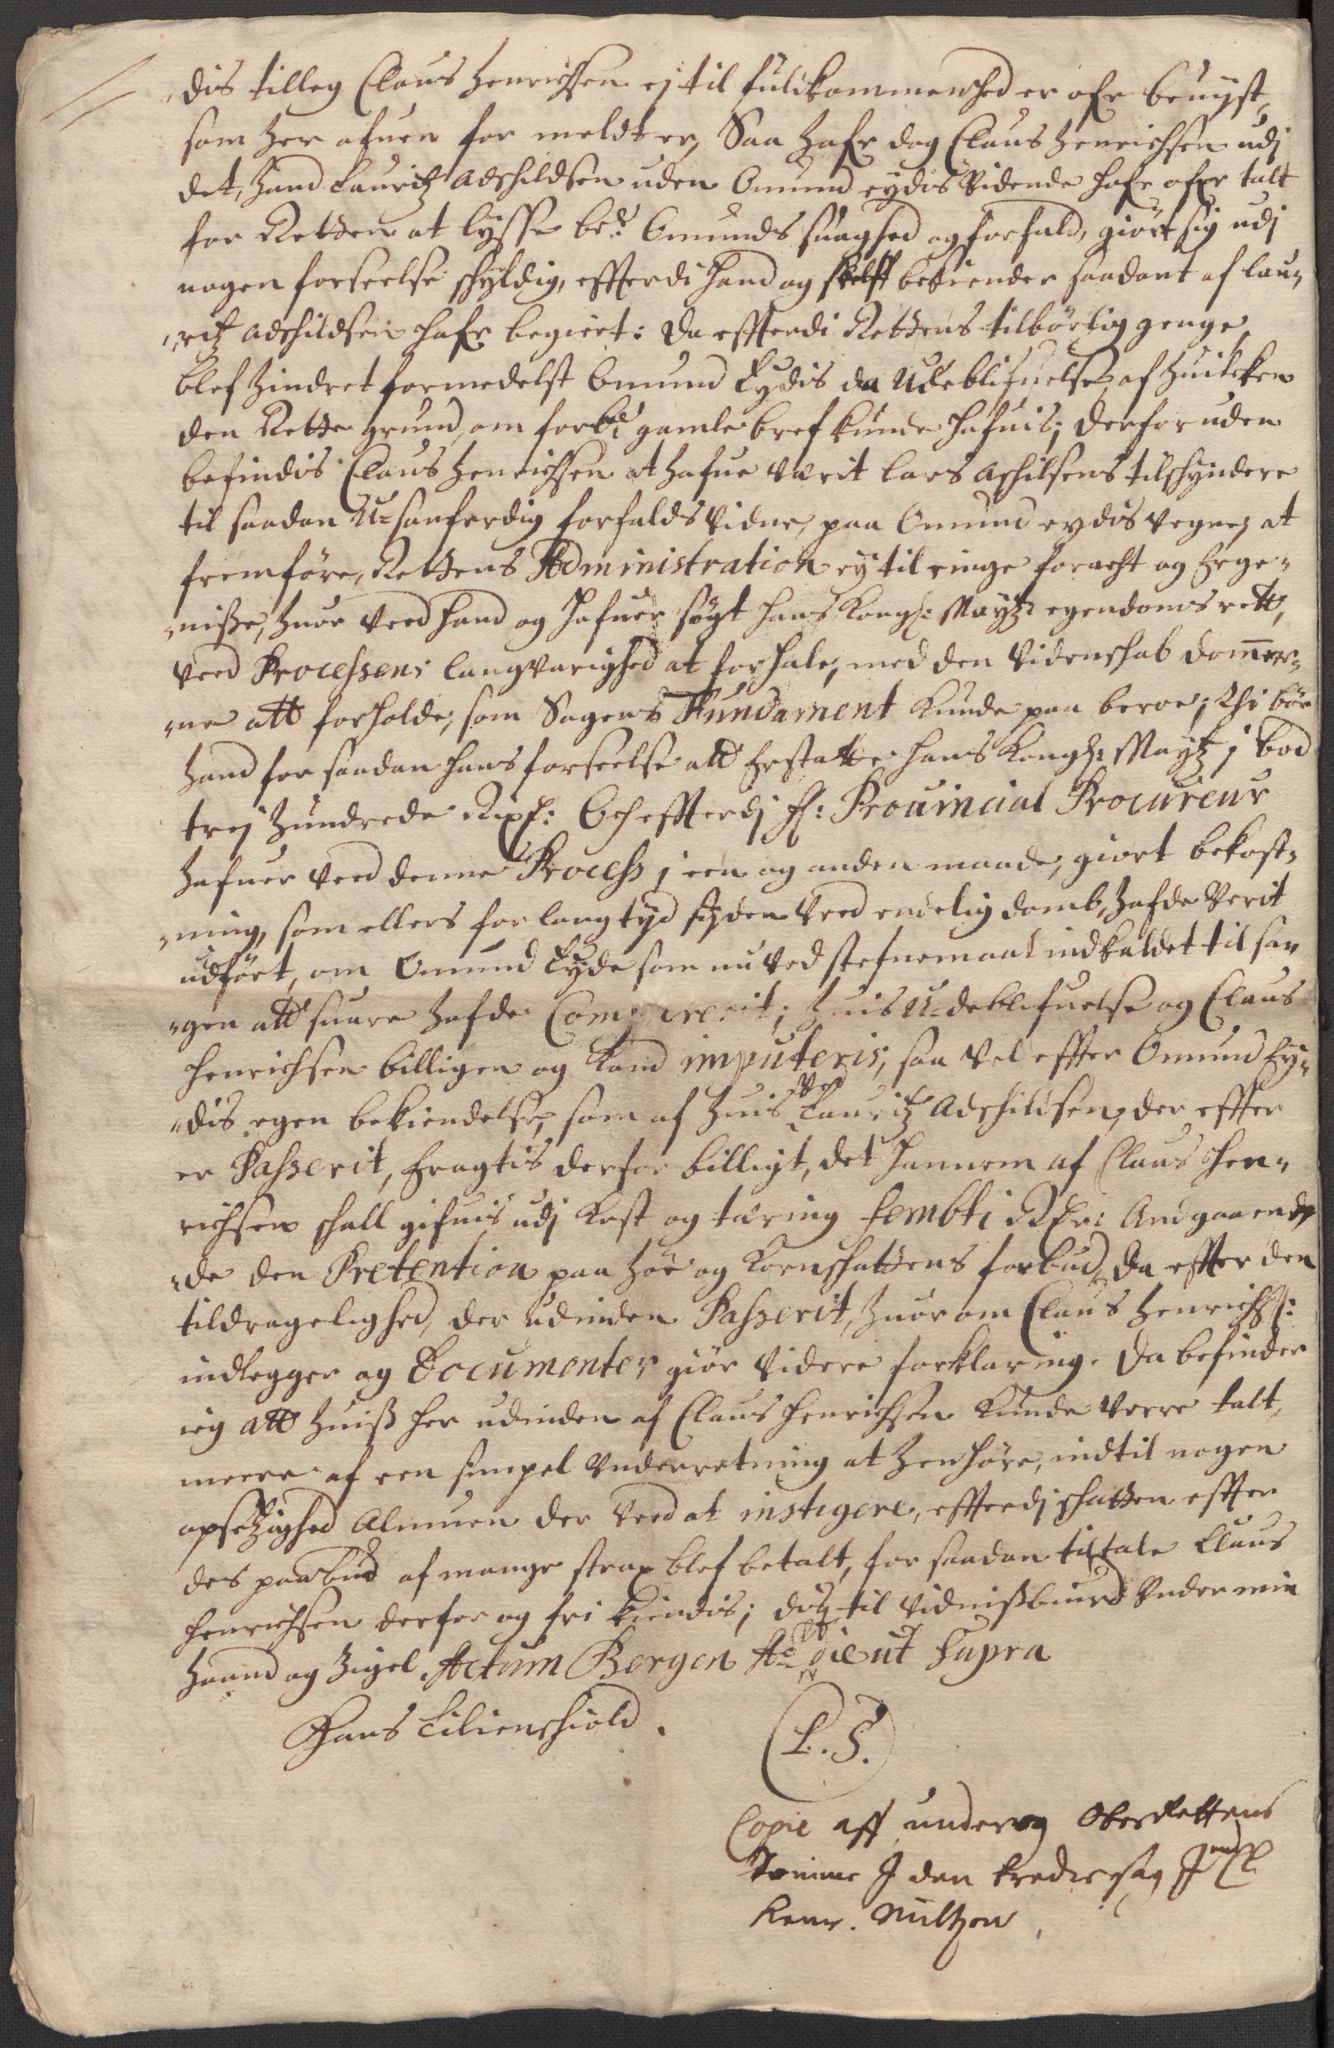 dis tilleg Claus Henrichsen ej til fuldkommenhed er ofr beuijst,
som her ofuen for meldt er, Saa hafr dog Claus Henrichsen udj
det, Hand Lauritz Adshildsen uden Omund eydis Vidende hafr ofr talt
for Retten at lysse bete Omunds suaghed og forfald, giört sig udj
nogen forseelse schyldig, effterdi Hand og sselff bekiender saadant af Lau¬
¬ritz Adshildsen hafr begiert: da effterdi Rettens tilbörlig genge
blef hindret formedelst Omund Eydis da Udeblifuelse, af huilcken
den Rette grund, om forbte gamle bref kunde hafuis; derforuden
befindis Claus Henrichsen at hafue værit Lars Aschilsens tilschyndere
til saadan U-sanferdig forfalds Vidne, paa Omund eydis vegne, at
fremföre, Rettens Administration ey til ringe foracht og Erge¬
¬nisse, huor Ved hand og hafuer sögt hans Kongl: Maytz egendoms rett,
Ved Processens langvarighed at forhale, med den Videnschab domer¬
¬ne att forholde, som Sagens Fundament kunde paa beroe; Thi bör
Hand for saadan hans forseelse att Erstatte hans Kongl: Maytz j bod
trej Hundrede Rixd: Och effterdj H: Prouincial Procureur
hafuer ved denne Process j een og anden maade, giort bekost¬
¬ning, som ellers for lang tyd siden Ved endelig domb, hafde Verit
udfört, om Omund Eyde som nu Ved stefnemaal indkaldet til sa¬
¬gen att suare hafde Comparerit; huis U-deblifuelse og Claus
Henrichsen billigen og kand imputeris, saa Vel effter Omund Ey¬
¬dis egen bekiendelse, som af huis Ved Lauritz Adshildsen, der effter
er Passerit, Eragtis derfor billigt, det hannem af Claus Hen¬
richsen schall gifuis udj kost og tæring fembti Rdr: Andgaaende
¬de den Pretention paa höe og kornschattens forbud, da effter den
tildragelighed, der udinden Passerit, huor om Claus Henrichs:
indlegger og Documenter giör Videre forklaring. Da befinder
ieg att huiss her udinden af Claus Henrichsen kunde Verre talt,
meere af een simpel Underretning at henhöre, indtil nogen
opsetzighed Almuen der Ved at instigere, effterdj schatten effter
des paabud af mange strax blef betalt, for saadan tiltale Claus
Henrichsen derfor og fri kiendis; dis til Vidnissbiurd Under min
Haand og Zigel Actum Bergen Ao die ut Supra
Hans Lilienschiold.
(L. S.)
Copie aff under og OberRettens
Domme J den tredie sag J
Henr. Miltzow.